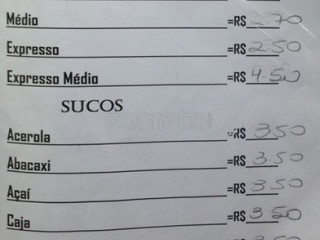 Médio =R$ 2.70
Expresso =R$ 2.50
Expresso Médio =R$ 4.50
SUCOS
Acerola =R$ 350
Abacaxi =R$ 3.50
Açaí =R$ 350
Caja =R$ 350